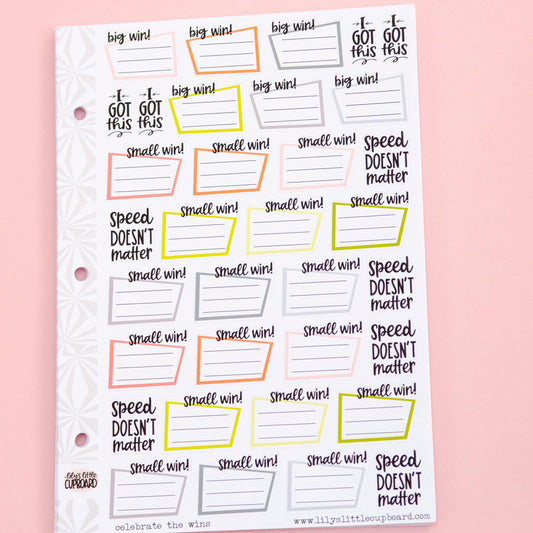 big win! big win! big win! I GOT this I GOT this
I GOT this I GOT this big win! big win! big win!
small win! small win! small win! Speed DOESN'T matter
Speed DOESN'T matter small win! small win! small win!
small win! small win! small win! Speed DOESN'T matter
small win! small win! small win! Speed DOESN'T matter
Speed DOESN'T matter small win! small win! small win!
small win! small win! small win! Speed DOESN'T matter
lily's little CUPBOARD
celebrate the wins www.lilyslittlecupboard.com